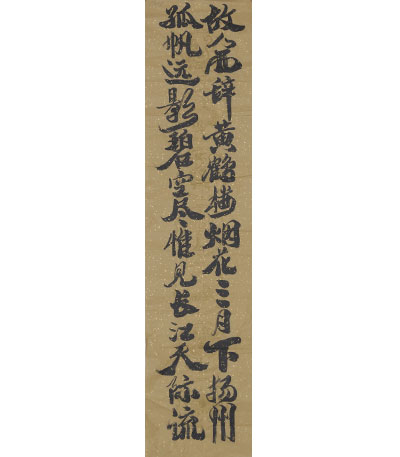 故人西辞黄鹤楼烟花三月下扬州
孤帆远影碧空尽惟见长江天际流